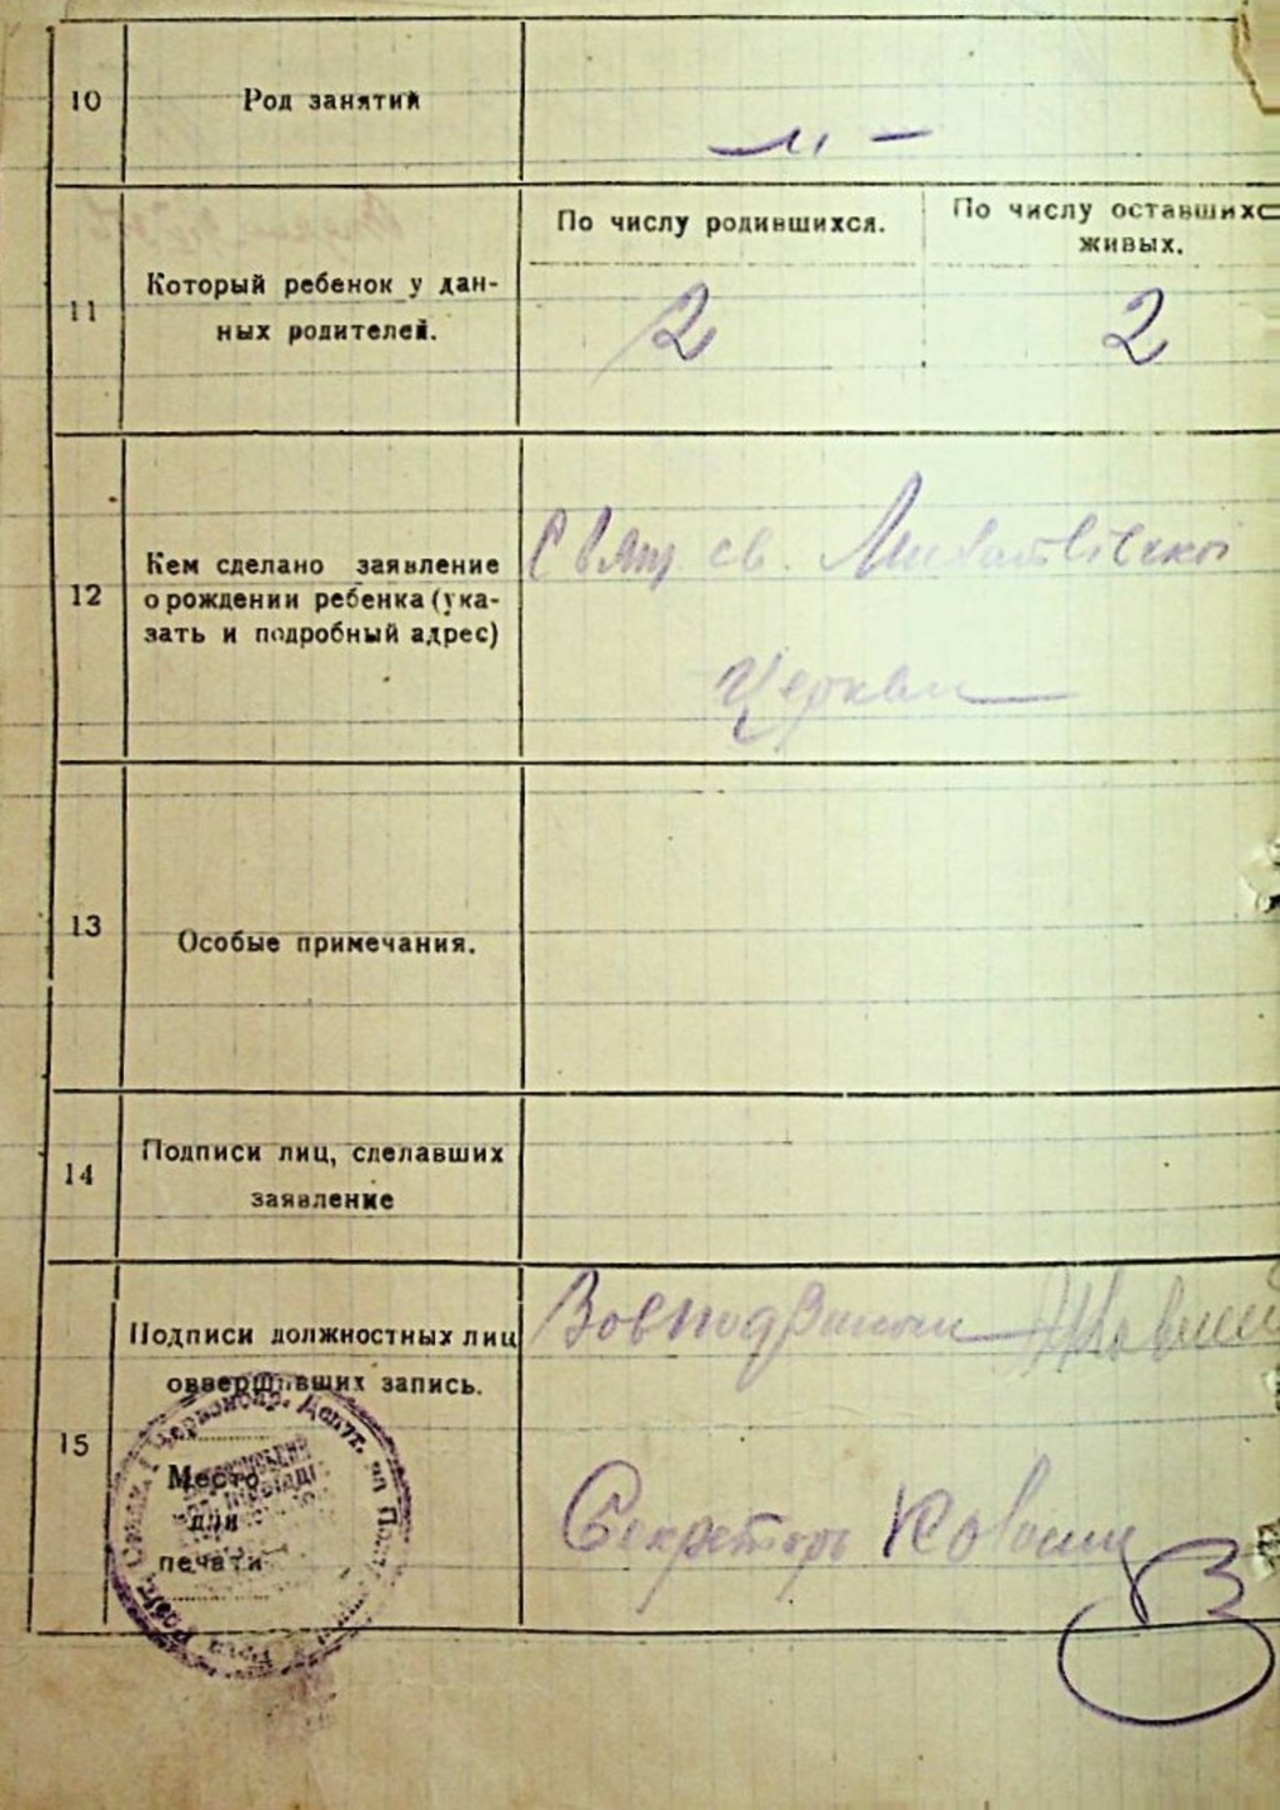 10
Род занятий
— „ —
11
Который ребенок у дан-
ных родителей.
По числу родившихся.
2
По числу оставшихс
живых.
2
12
Кем сделано заявление
о рождении ребенка (ука-
зать и подробный адрес)
Свящ. св.
Церкви
13
Особые примечания.
14
Подписи лиц, сделавших
заявление
15
Подписи должностных лиц
овверш вших запись.
Место
для
печати
Секреторь